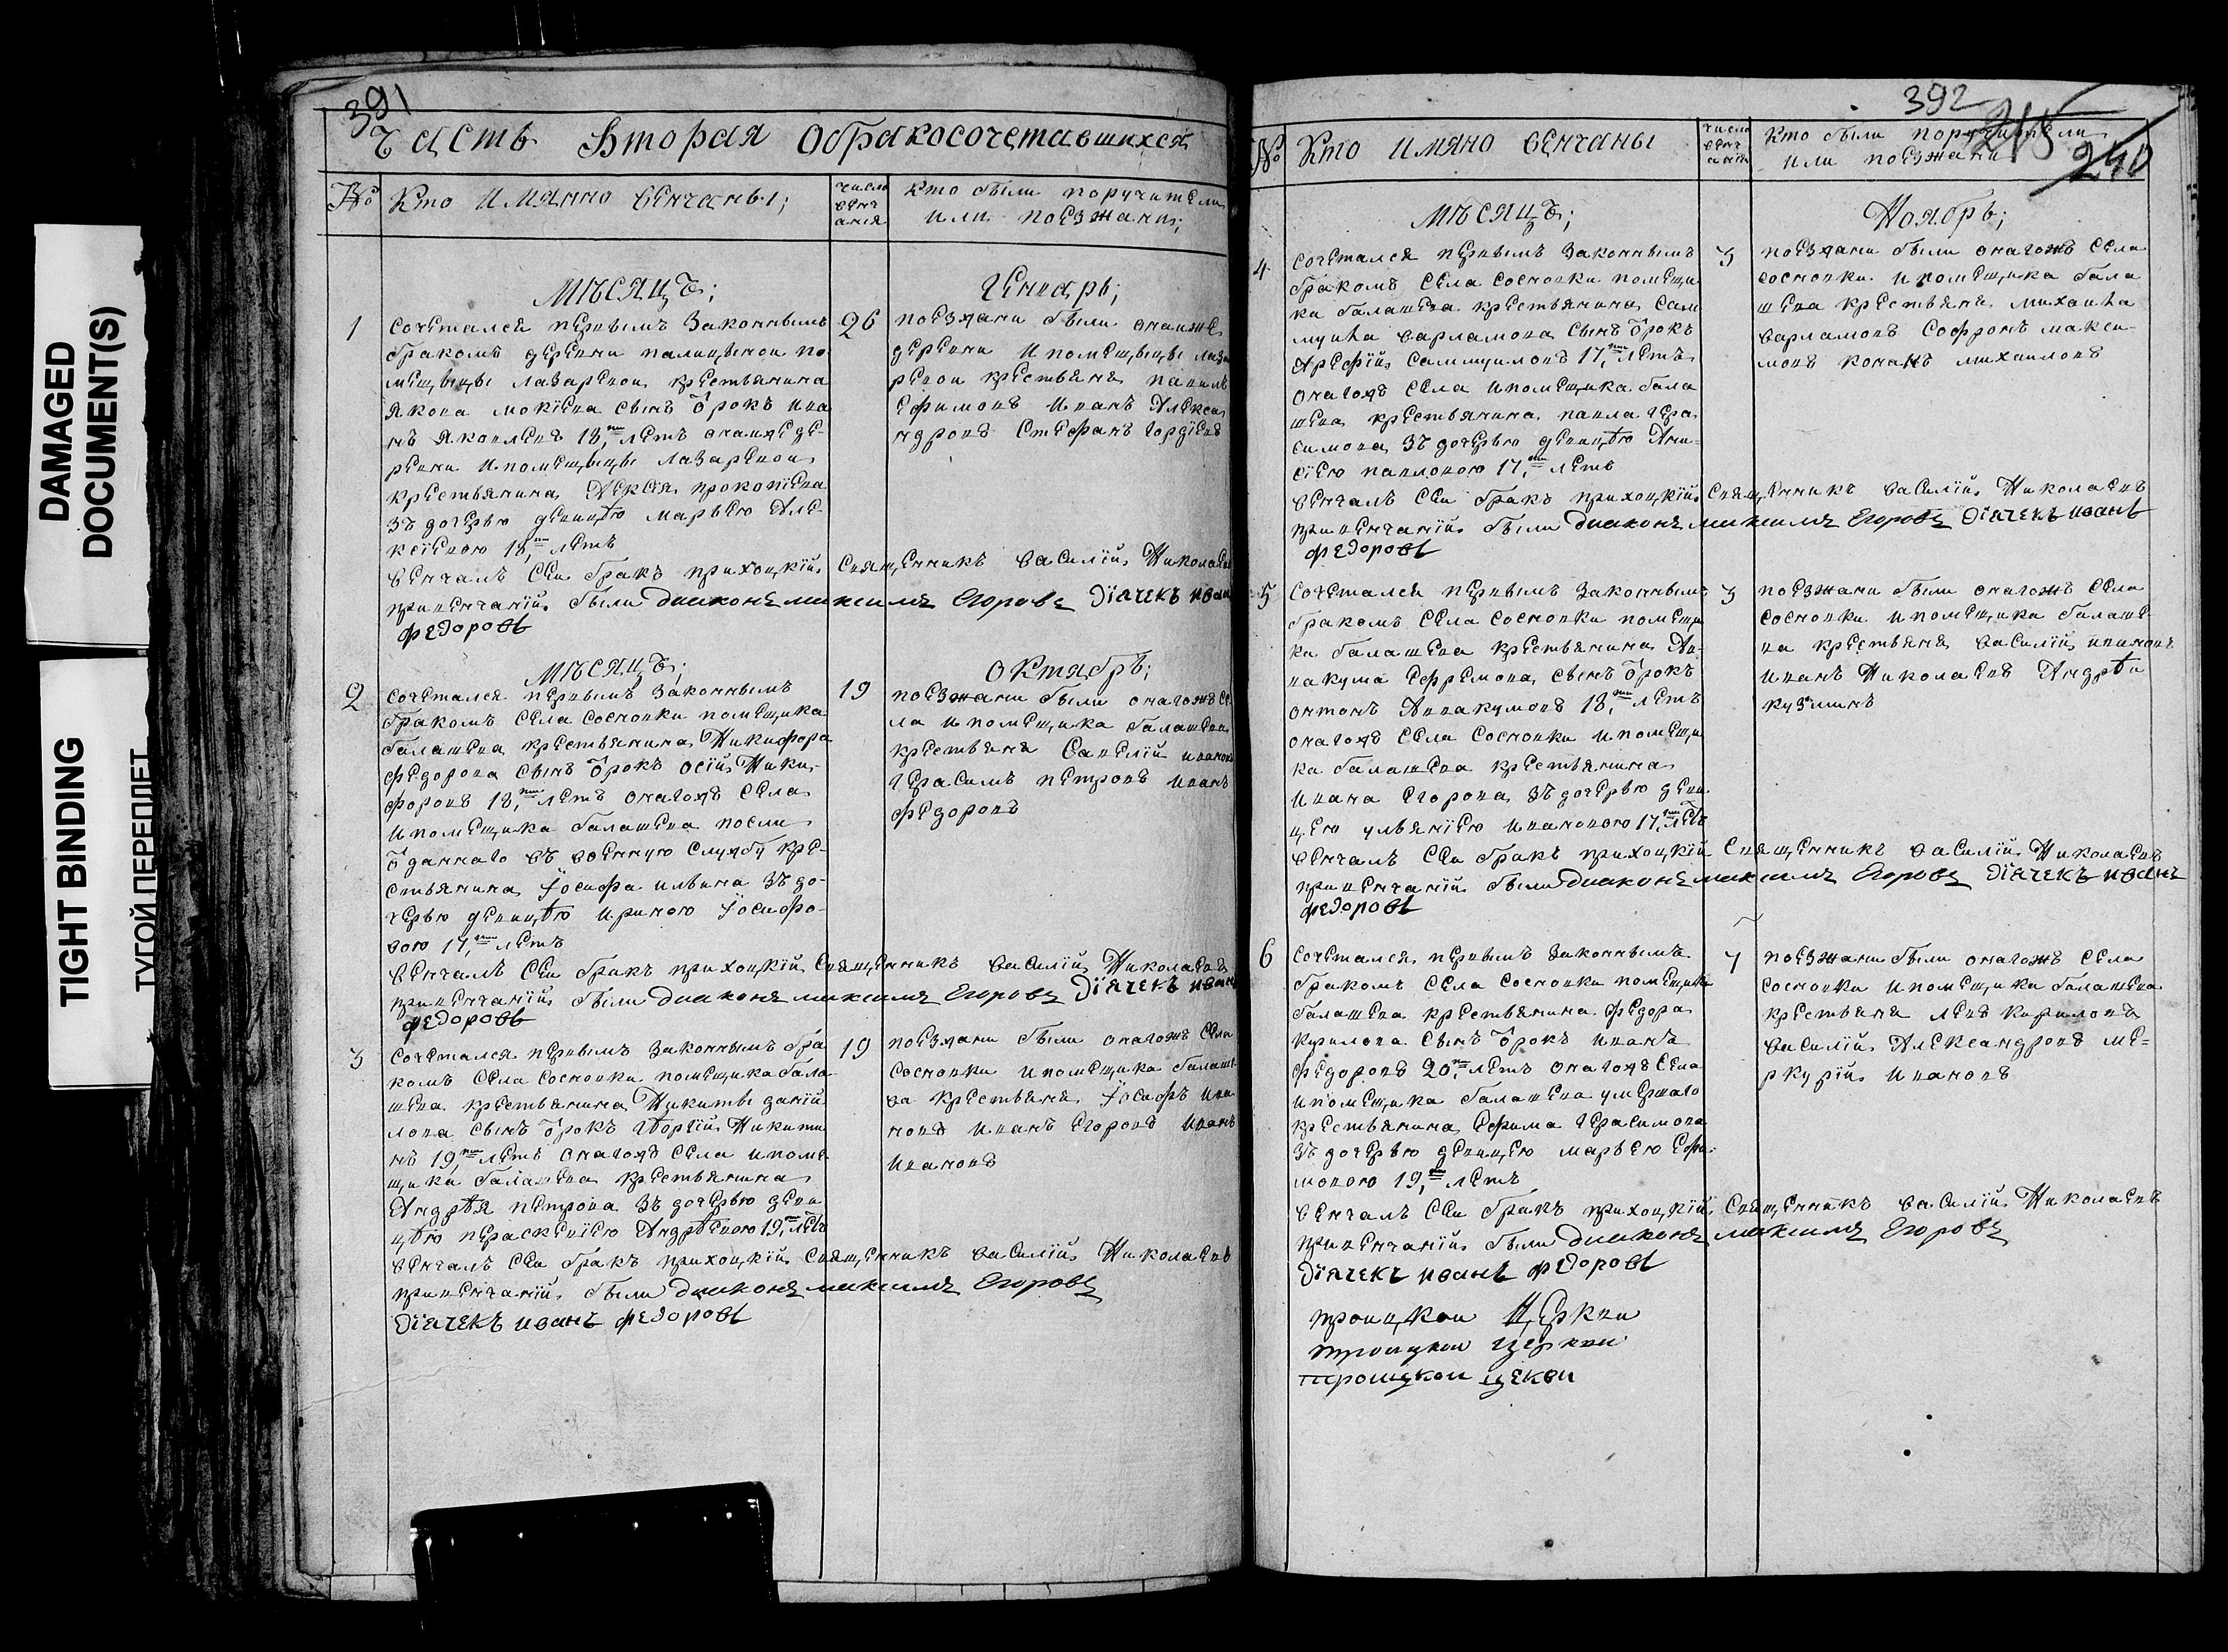 DAMAGED
DOCUMENT(S)
TIGHT BINDING
ТУГОЙ ПЕРЕПЛЕТ
391
Часть Вторая Обракосочетавшихся
№ Кто имянно венчаны; число венчания Кто были поручители
или поезжани;
Мѣсяцъ; Генварь;
1 сочетался первымъ Законнымъ 26
бракомъ деревни палицыной по-
мещыцы лазаревой крестьянина
Якова мокіева сынъ Ѿрокъ ива
нъ Яковлевъ 18,ти летъ онаяже де-
ревни и помещыцы лазаревой
крестьянина Алексія прокопіева
зъ дочерью девицѣю марьею Але-
ксіевою 18,ти летъ
поезжани были оная же
деревни и помещыцы лаза
ревой крестьяне павелъ
ефимовъ иванъ Алекса
ндровъ Стефанъ гордіевъ
венчалъ сей бракъ приходскій Священникъ василій Николаевъ
привенчаніи были диаконъ максимъ Егоровъ Діячекъ иванъ
федоровъ
Мѣсяцъ; октябрь;
2 сочетался первымъ Законнымъ 19
бракомъ села сосновки помещика
балашева крестьянина Никифора
федорова сынъ Ѿрокъ осій Ники-
форовъ 18,ти летъ онагожъ села
и помещика балашева посли
Ѿданнаго въ военную службу кре-
стьянина Іосифа ильина зъ до-
черью девицѣю ириною Іосифо-
вою 17,ти летъ
поезжани были онагожъ се
ла и помещика балашева
крестьяне Савелій ивановъ
герасимъ петровъ иванъ
федоровъ
венчалъ сей бракъ приходскій Священникъ василій Николаевъ
привенчаніи были диаконъ максимъ Егоровъ Діячекъ иванъ
федоровъ
3 сочетался первымъ Законнымъ бра 19
комъ села сосновки помещика бала-
шева крестьянина Никиты даній
лова сынъ Ѿрокъ Никити
нъ 19,ти летъ онагожъ села и поме-
щика балашева крестьянина
Андрѣя петрова зъ дочерью деви
цѣю параскевіею Андрѣевою 19,ти летъ
поезжани были онагожъ села
сосновки и помещика балаше
ва крестьяне Іосифъ ива
новъ иванъ егоровъ иванъ
ивановъ
венчалъ сей бракъ приходскій Священникъ василій Николаевъ
привенчаніи были диаконъ максимъ Егоровъ
Діячекъ иванъ федоровъ
392
215
240
№ Кто имяно венчаны число венчания Кто были поручители
или поезжани
Мѣсяцъ; Ноябрь;
4 сочетался первымъ Законнымъ 3
бракомъ села сосновки помещи
ка балашева крестьянина сам
муила варламова сынъ Ѿрокъ
Арефій Саммуиловъ 17,ти летъ
онагожъ села и помещика бала
шева крестьянина павла гера
симова зъ дочерью девицѣю Ани-
сіею павловою 17,ти летъ
поезжани были онагожъ села
сосновки и помещика бала
шева крестьяне михаила
варламовъ Софронъ макси-
мовъ конанъ михаиловъ
венчалъ сей бракъ приходскій Священникъ василій Николаевъ
привенчаніи были диаконъ максимъ Егоровъ Діячекъ иванъ
федоровъ
5 сочетался первымъ Законнымъ 3
бракомъ села сосновки помещи
ка балашева крестьянина Ав-
вакума Ефремова сынъ Ѿрокъ
онтонъ Аввакумовъ 18,ти летъ
онагожъ села сосновки и помещи
ка балашева крестьянина
ивана егорова зъ дочерью деви
цею ульяніею ивановою 17,ти летъ
поезжани были онагожъ села
сосновки и помещика балаше-
ва крестьяне василій ивановъ
иванъ Николаевъ Андрѣи
кузминъ
венчалъ сей бракъ приходскій Священникъ василій Николаевъ
привенчаніи были диаконъ максимъ Егоровъ Діячекъ иванъ
федоровъ
6 сочетался первымъ Законнымъ 7
бракомъ села сосновки помещика
балашева крестьянина федора
курилова сынъ Ѿрокъ иванъ
федоровъ 20,ти летъ онагожъ села
и помещика балашева умершаго
крестьянина Ефима герасимова
зъ дочерью девицею марьею Ефи-
мовою 19,ти летъ
поезжани были онагожъ села
сосновки и помещика балашева
крестьяне левъ кириловъ
василій Александровъ ме-
ркурій ивановъ
венчалъ сей бракъ приходскій Священникъ василій Николаевъ
привенчаніи были диаконъ максимъ Егоровъ
Діячекъ иванъ федоровъ
троицкой Церкви
троицкой церкви
троицкой цекви